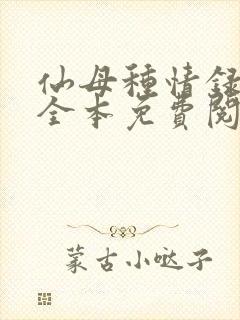 仙母種情録
全本免費閱
蒙古小哒子